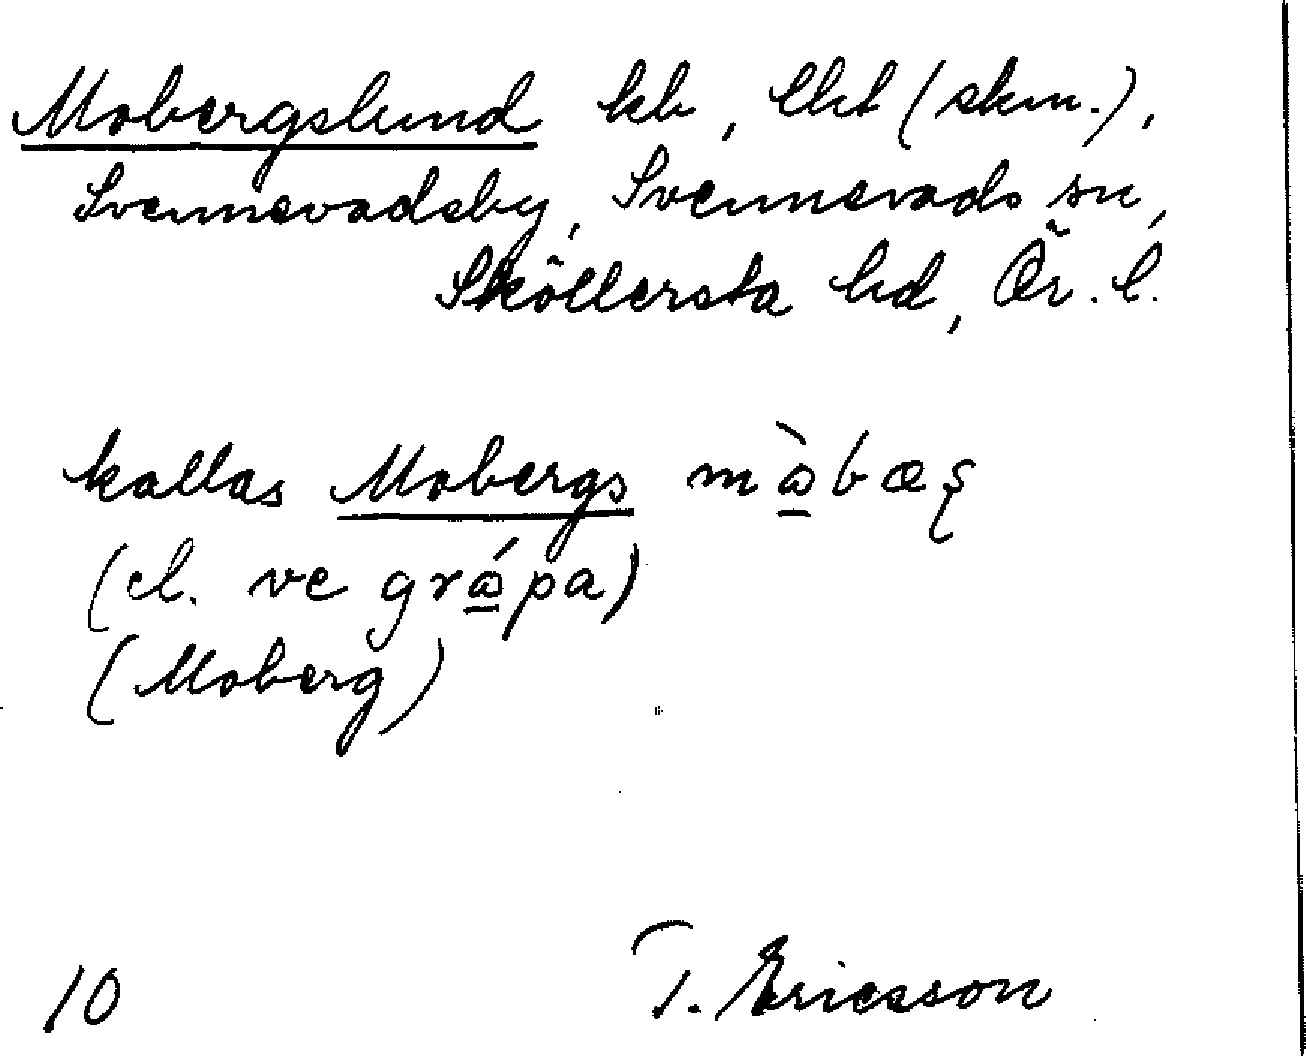 Mobergslund kb, lht (skm.),
Svennevadsby, Svennevads sn,
Sköllersta hd, Ör. l.
kallas Mobergs
(el. ve
(Moberg)
10 T. Ericsson